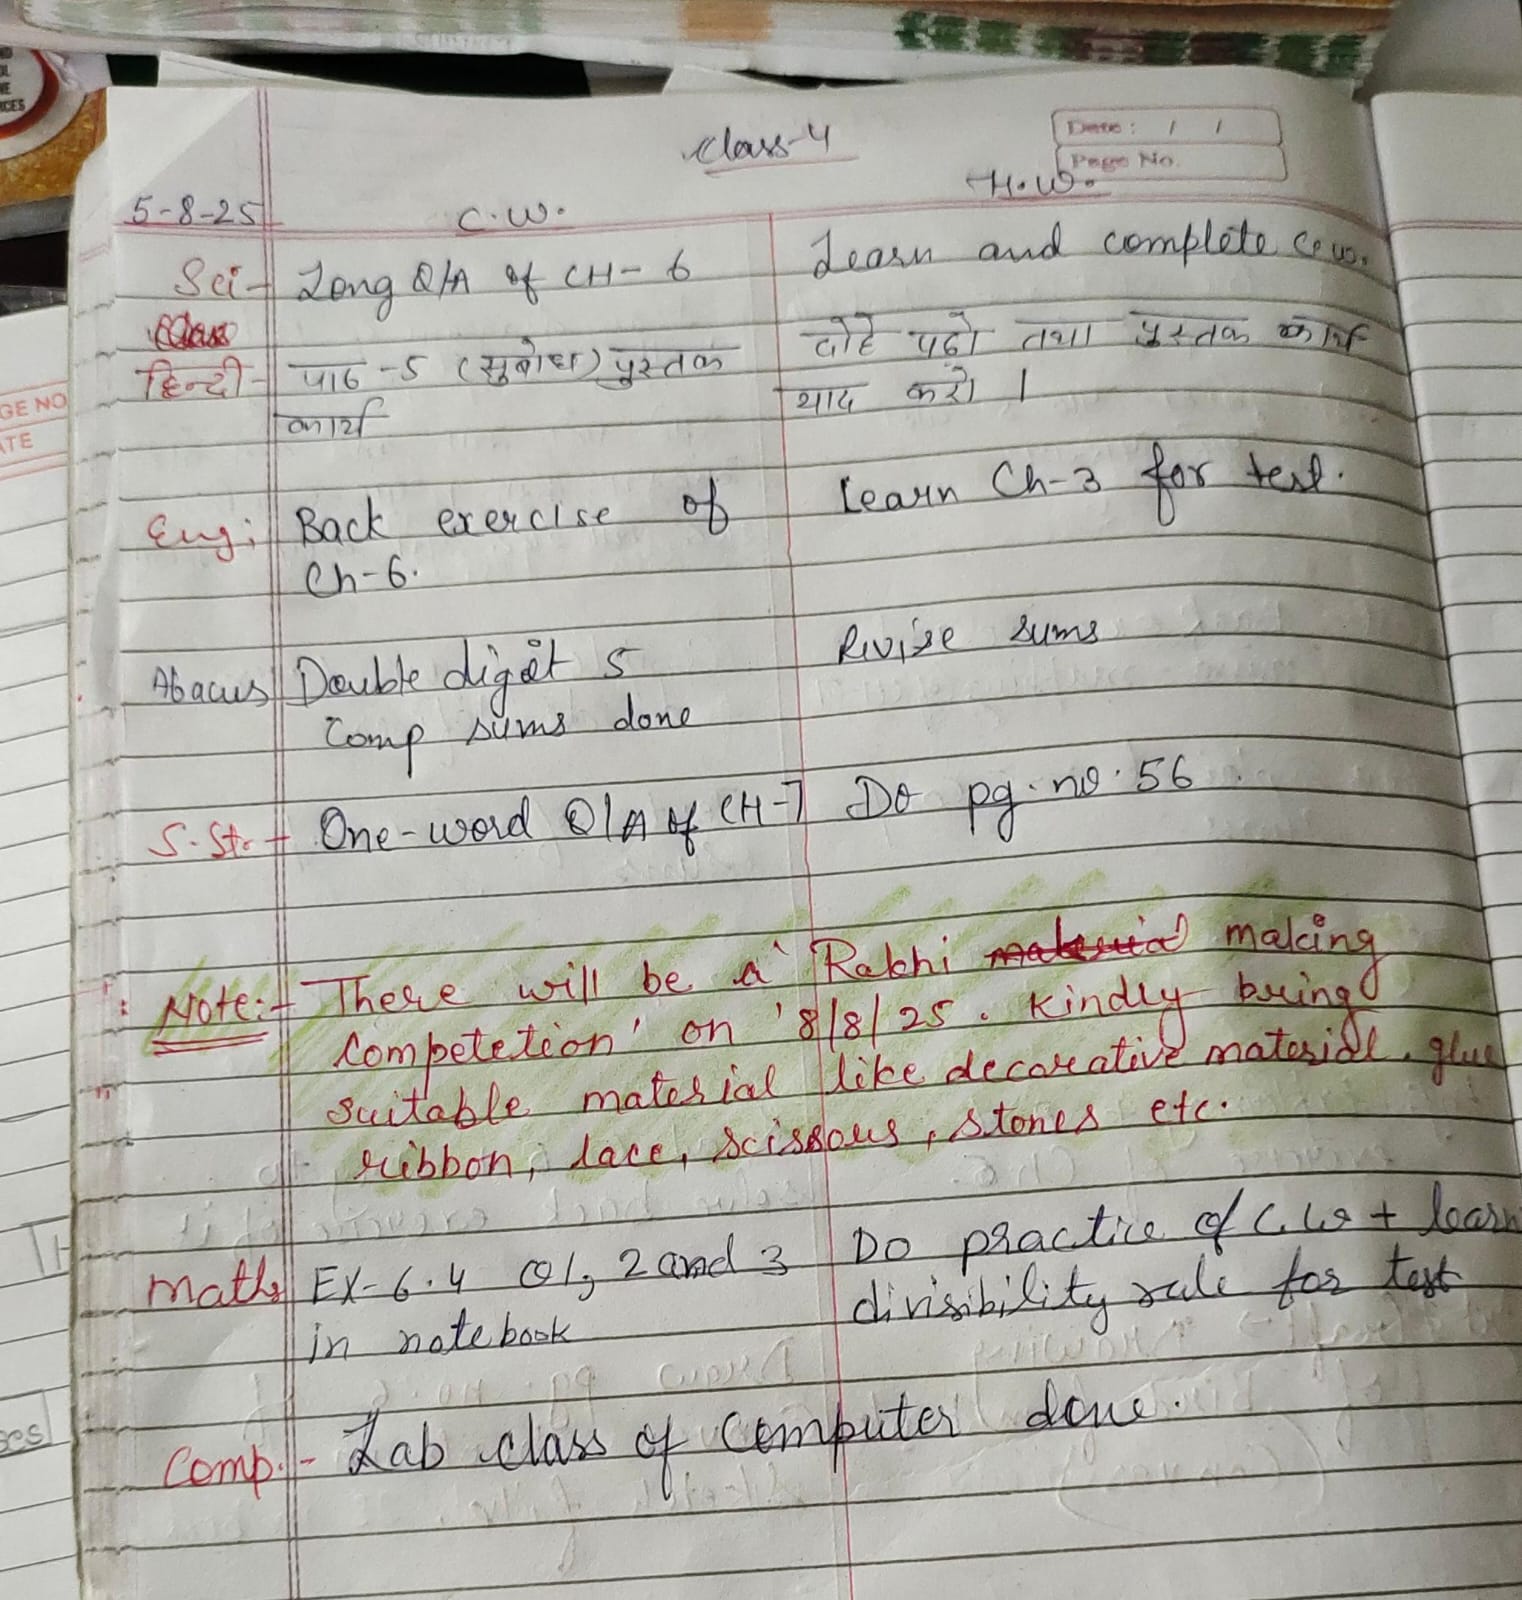 Class-4
Date : / /
Page No.
5-8-25 C.W. H.W.
Sci- Long Q/A of CH-6 Learn and complete C.W.
हिन्दी- पाठ-5 (सुबोध) पुस्तक दोहे पढो तथा पुस्तक कार्य
कार्य याद करो ।
Eng: Back exercise of Learn Ch-3 for test.
Ch-6.
Abacus Double digit 5 Revise sums
Comp sums done
S.St.- One-word Q/A of CH-7 Do pg. no. 56
Note:- There will be a 'Rakhi making
Competetion' on '8/8/25. Kindly bring
suitable material like decorative material, glue
ribbon, lace, scissous, stones etc.
Maths EX-6.4 Q1, 2 and 3 Do practice of C.W + learn
in notebook divisibility rule for test
Comp.:- Lab class of Computer done.
GE NO
ATE